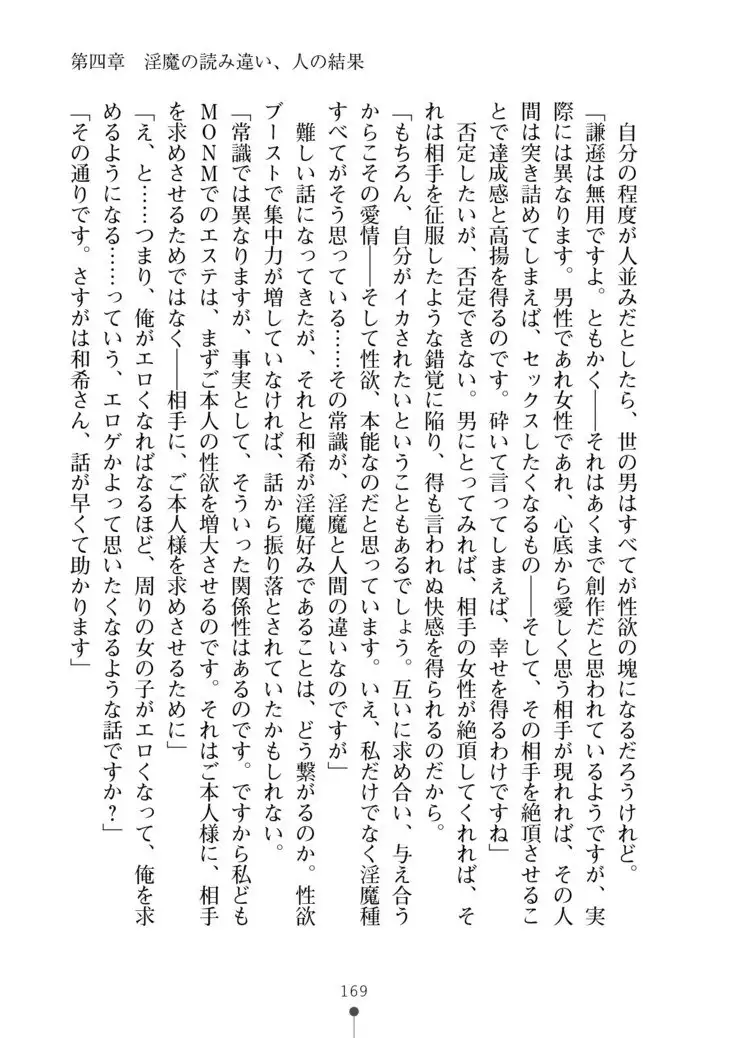 第四章　淫魔の読み違い、人の結果
　自分の程度が人並みだとしたら、世の男はすべてが性欲の塊になるだろうけれど。
「謙遜は無用ですよ。ともかく――それはあくまで創作だと思われているようですが、実
際には異なります。男性であれ女性であれ、心底から愛しく思う相手が現れれば、その人
間は突き詰めてしまえば、セックスしたくなるもの――そして、その相手を絶頂させるこ
とで達成感と高揚を得るのです。砕いて言ってしまえば、幸せを得るわけですね」
　否定したいが、否定できない。男にとってみれば、相手の女性が絶頂してくれれば、そ
れは相手を征服したような錯覚に陥り、得も言われぬ快感を得られるのだから。
「もちろん、自分がイカされたいということもあるでしょう。互いに求め合い、与え合う
からこその愛情――そして性欲、本能なのだと思っています。いえ、私だけでなく淫魔種
すべてがそう思っている……その常識が、淫魔と人間の違いなのですが」
　難しい話になってきたが、それと和希が淫魔好みであることは、どう繋がるのか。性欲
ブーストで集中力が増していなければ、話から振り落とされていたかもしれない。
「常識では異なりますが、事実として、そういった関係性はあるのです。ですから私ども
ＭＯＮＭでのエステは、まずご本人の性欲を増大させるのです。それはご本人様に、相手
を求めさせるためではなく――相手に、ご本人様を求めさせるために」
「え、と……つまり、俺がエロくなればなるほど、周りの女の子がエロくなって、俺を求
めるようになる……っていう、エロゲかよって思いたくなるような話ですか？」
「その通りです。さすがは和希さん、話が早くて助かります」
169